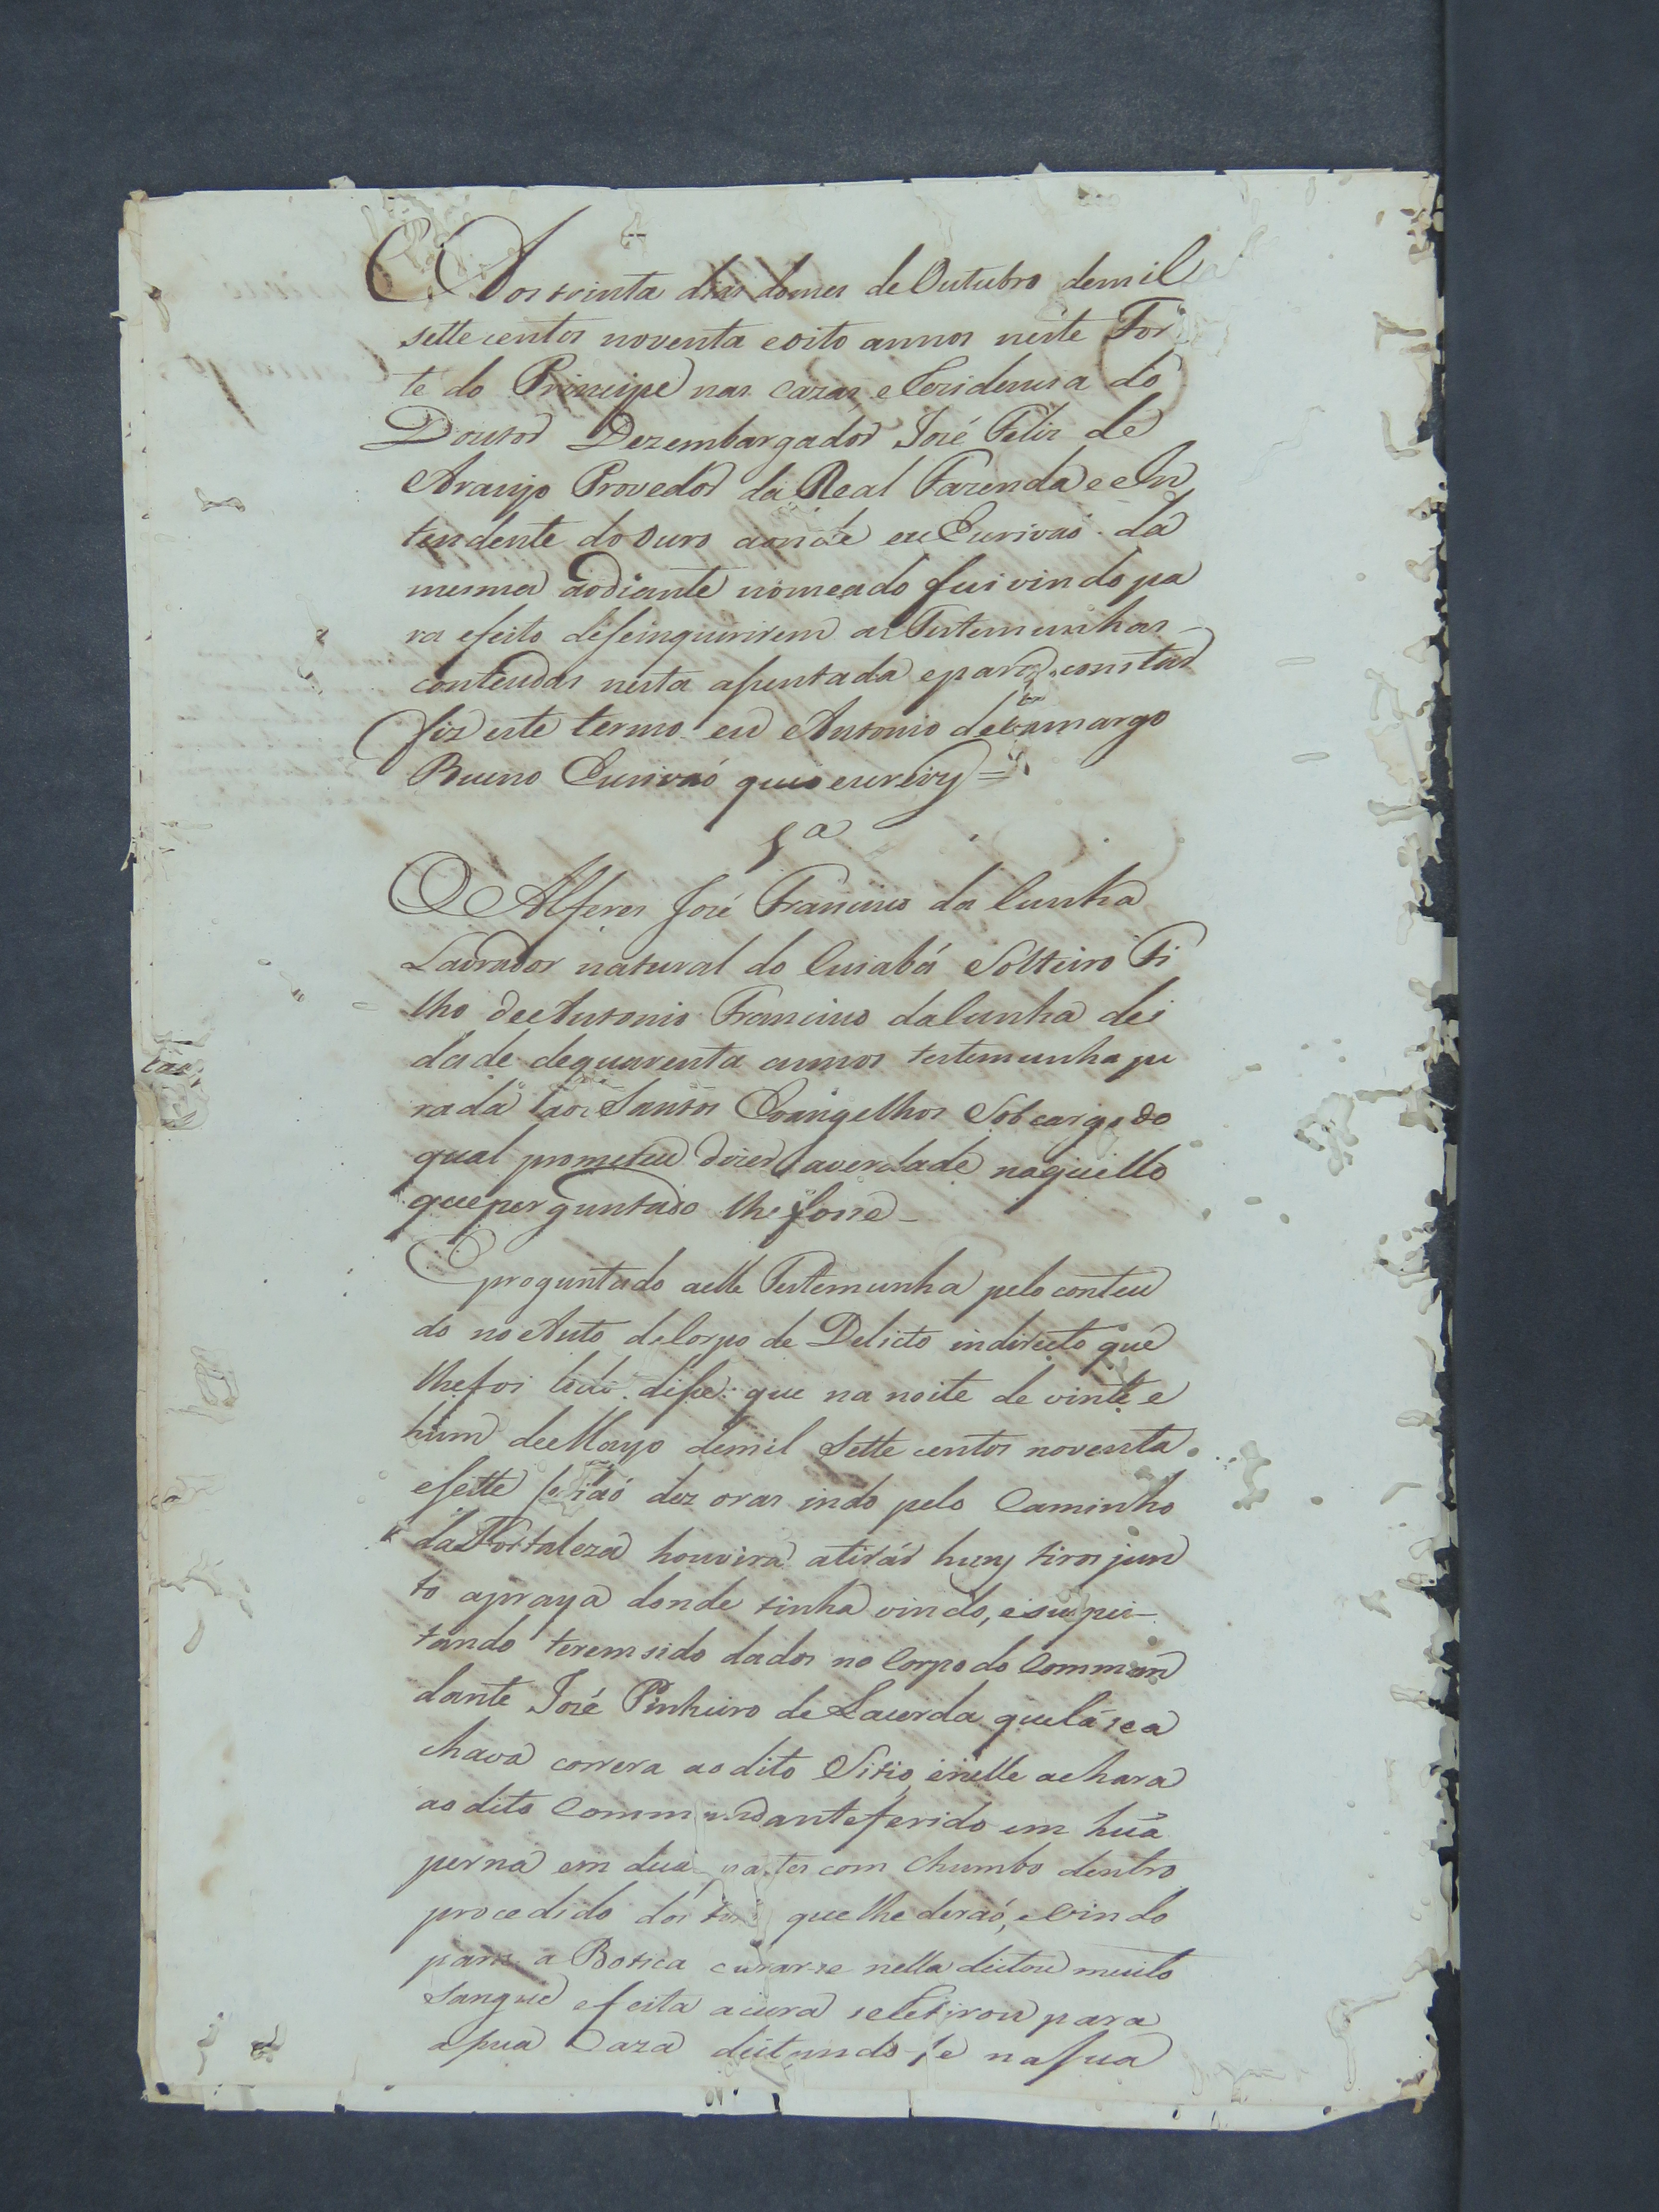 Aos trinta dias domes de Outubro demil
sette centos noventa eoito annos neste For
te do Principe nas cazas e Rezidencia do
Doutor Dezembargador José Felis de
Araujo Provedor da Real Fazenda e In
tendente do Ouro aonde eu Escrivaõ da
mesma aodiante nomeado fui vindo pa
ra efeito deseinquirirem as Testemunhas
contendas nesta asentada epara constar
fiz este termo eu Antonio de Camargo
Bueno Escrivaõ que o escrevy =
1ª
O Alferes José Francisco da Cunha
Lavrador natural do Cuiabá Solteiro Fi
lho de Antonio Francisco daCunha dei
dade dequarenta annos testemunha ju
rada aos Santos Evangelhos Sob cargo do
qual prometeu dizer averdade naquillo
queperguntado lhe fosse
E proguntado aelle Testemunha pelo conteu
do no Auto deCorpo de Delicto indirecto que
lhefoi lido disse: que na noite de vinte e
hum de Mayo demil Sette centos noventa
esette seriaõ dez oras indo pelo Caminho
da Fortaleza houvira atirár huns tiros jun
to apraya donde tinha vindo, esuspei-
tando teremsido dados no Corpo do Comman
dante José Pinheiro de Lacerda quelá sea
chava correra ao dito Sitio, enelle achara
ao dito Commandante ferido em huã
perna em duas partes com chumbo dentro
procedido dos tiros que lhe deraõ, e vindo
para a Botica curarse nella deitou muito
Sangue efeita acura seRetirou para
asua Caza deitando-se nasua